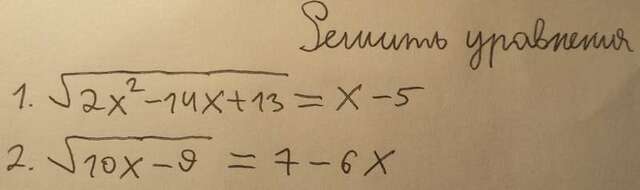 Решить уравнения
1. √2x²-14x+13 = x-5
2. √10x-9 = 7-6x